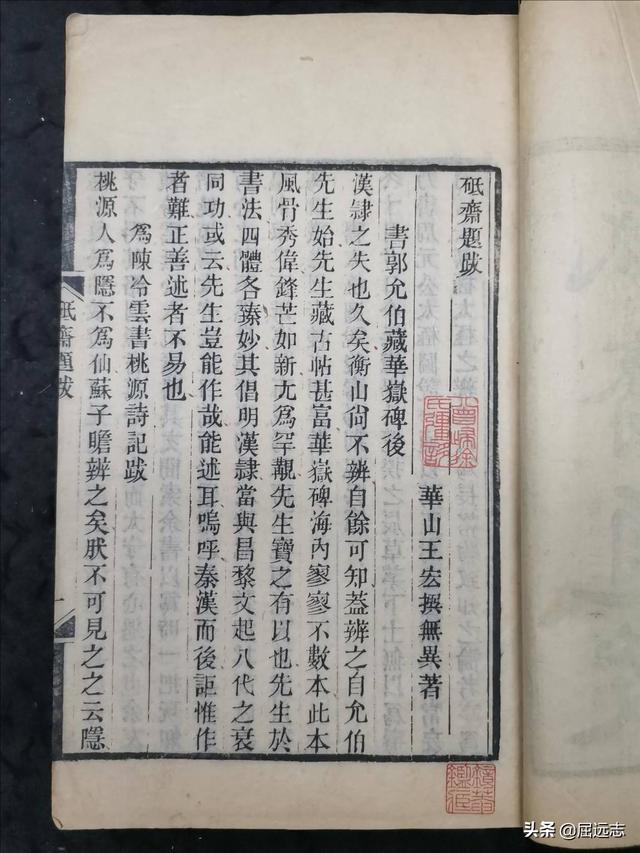 砥齋題跋
華山王宏撰無異著
書郭允伯藏華嶽碑後
漢隸之失也久矣衡山尙不辨自餘可知蓋辨之自允伯
先生始先生藏古帖甚富華嶽碑海内寥寥不數本此本
風骨秀偉鋒芒如新尤爲罕覯先生寶之有以也先生於
書法四體各臻妙其倡明漢隸當與昌黎文起八代之衰
同功或云先生豈能作哉能述耳嗚呼秦漢而後詎惟作
者難正善述者不易也
爲陳冷雲書桃源詩記跋
桃源人爲隱不爲仙蘇子瞻辨之矣肰不可見之之云隱
砥齋題跋
一
头条 @屈远志